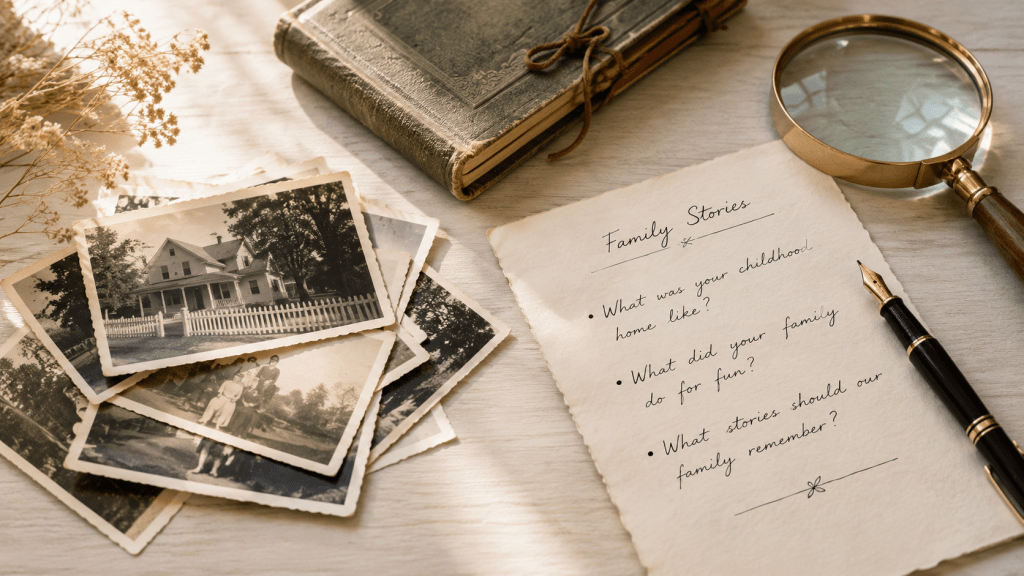 Family Stories
• What was your childhood
home like?
• What did your family
do for fun?
• What stories should our
family remember?